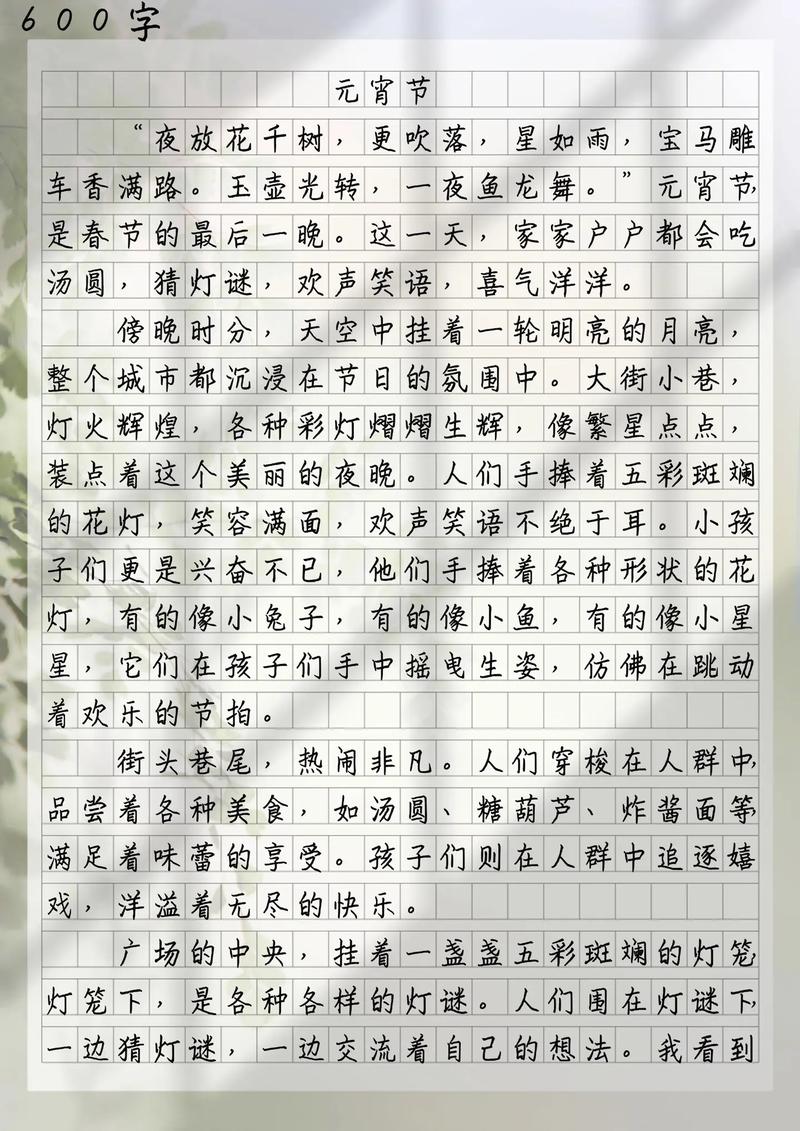 600字
元宵节
“夜放花千树，更吹落，星如雨，宝马雕
车香满路。玉壶光转，一夜鱼龙舞。”元宵节，
是春节的最后一晚。这一天，家家户户都会吃
汤圆，猜灯谜，欢声笑语，喜气洋洋。
傍晚时分，天空中挂着一轮明亮的月亮，
整个城市都沉浸在节日的氛围中。大街小巷，
灯火辉煌，各种彩灯熠熠生辉，像繁星点点，
装点着这个美丽的夜晚。人们手捧着五彩斑斓
的花灯，笑容满面，欢声笑语不绝于耳。小孩
子们更是兴奋不已，他们手捧着各种形状的花
灯，有的像小兔子，有的像小鱼，有的像小星
星，它们在孩子们手中摇曳生姿，仿佛在跳动
着欢乐的节拍。
街头巷尾，热闹非凡。人们穿梭在人群中，
品尝着各种美食，如汤圆、糖葫芦、炸酱面等，
满足着味蕾的享受。孩子们则在人群中追逐嬉
戏，洋溢着无尽的快乐。
广场的中央，挂着一盏盏五彩斑斓的灯笼，
灯笼下，是各种各样的灯谜。人们围在灯谜下，
一边猜灯谜，一边交流着自己的想法。我看到